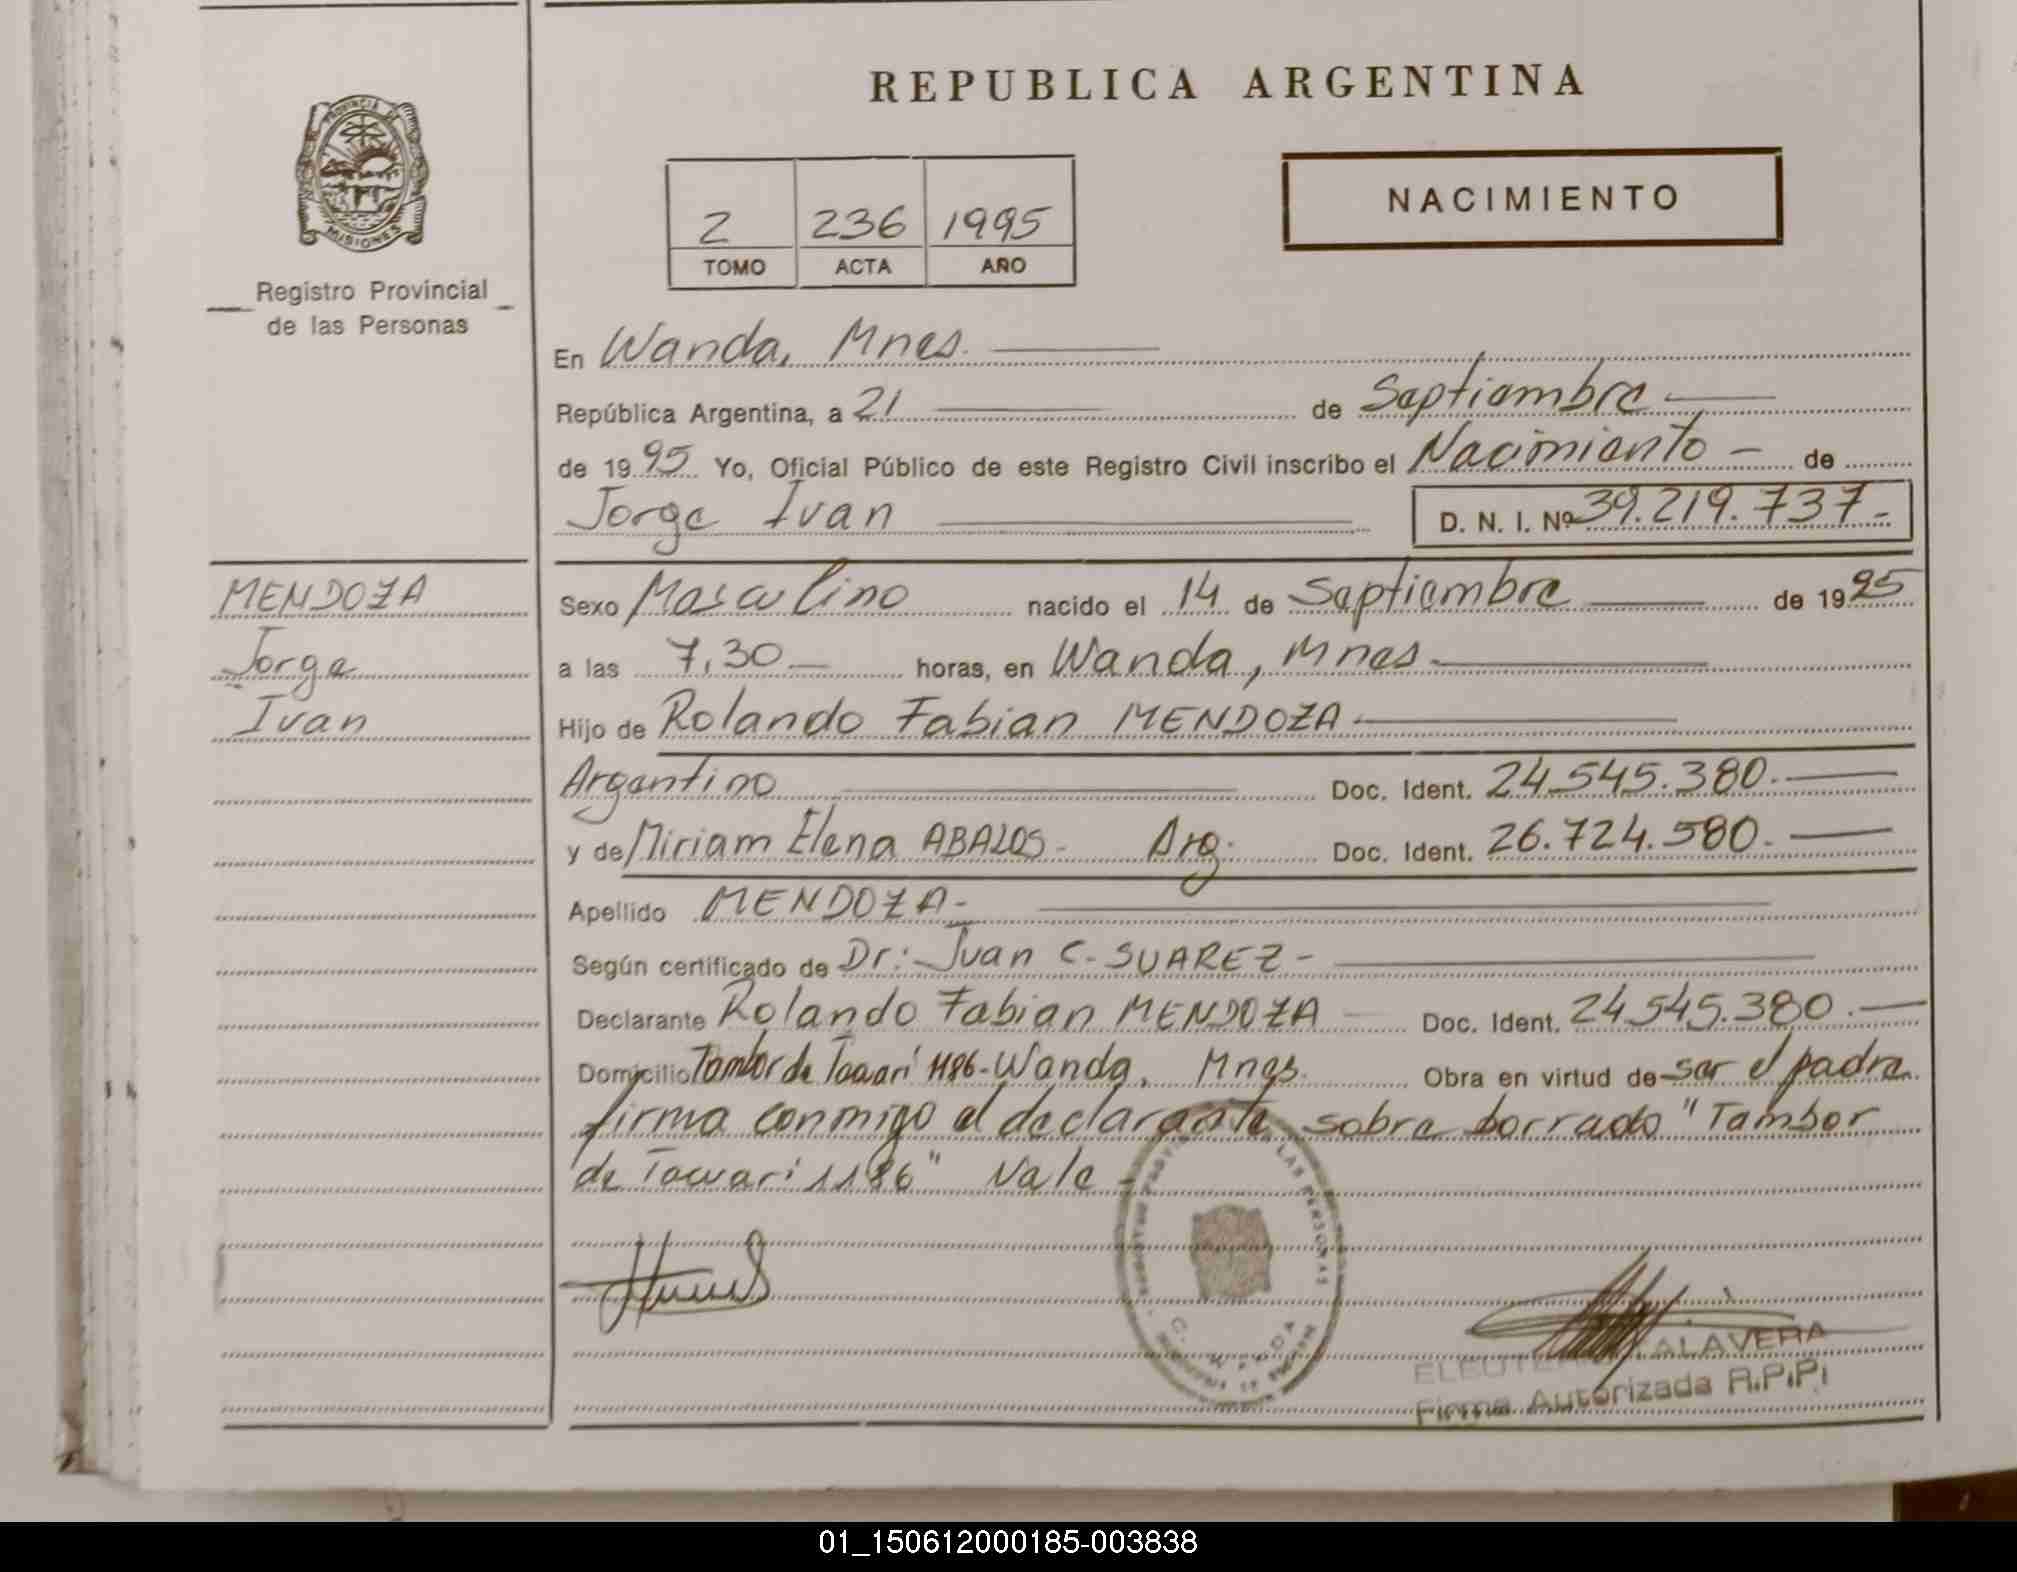 REPUBLICA ARGENTINA
PROVINCIA DE
MISIONES
Registro Provincial
de las Personas
2 236 1995
TOMO ACTA AÑO
NACIMIENTO
En Wanda, Mnes.
República Argentina, a 21 de Septiembre
de 1995 Yo, Oficial Público de este Registro Civil inscribo el Nacimiento - de
Jorge Ivan D. N. I. Nº 39.219.737-
MENDOZA
Jorge
Ivan
Sexo Masculino nacido el 14 de Septiembre de 1995
a las 7,30 horas, en Wanda, Mnes
Hijo de Rolando Fabian MENDOZA
Argentino Doc. Ident. 24.545.380.
y de Miriam Elena ABALOS- Arg. Doc. Ident. 26.724.580.
Apellido MENDOZA-
Según certificado de Dr: Juan C. SUAREZ-
Declarante Rolando Fabian MENDOZA Doc. Ident. 24.545.380.
Domicilio Tambor de Tacuari 1186-Wanda, Mnes. Obra en virtud de ser el padre
firma conmigo el declarante sobre borrado "Tambor
de Tacuari 1186" Vale
LAS PERSONAS
WANDA
ALAVERA
Firma Autorizada R.P.P.
01_150612000185-003838